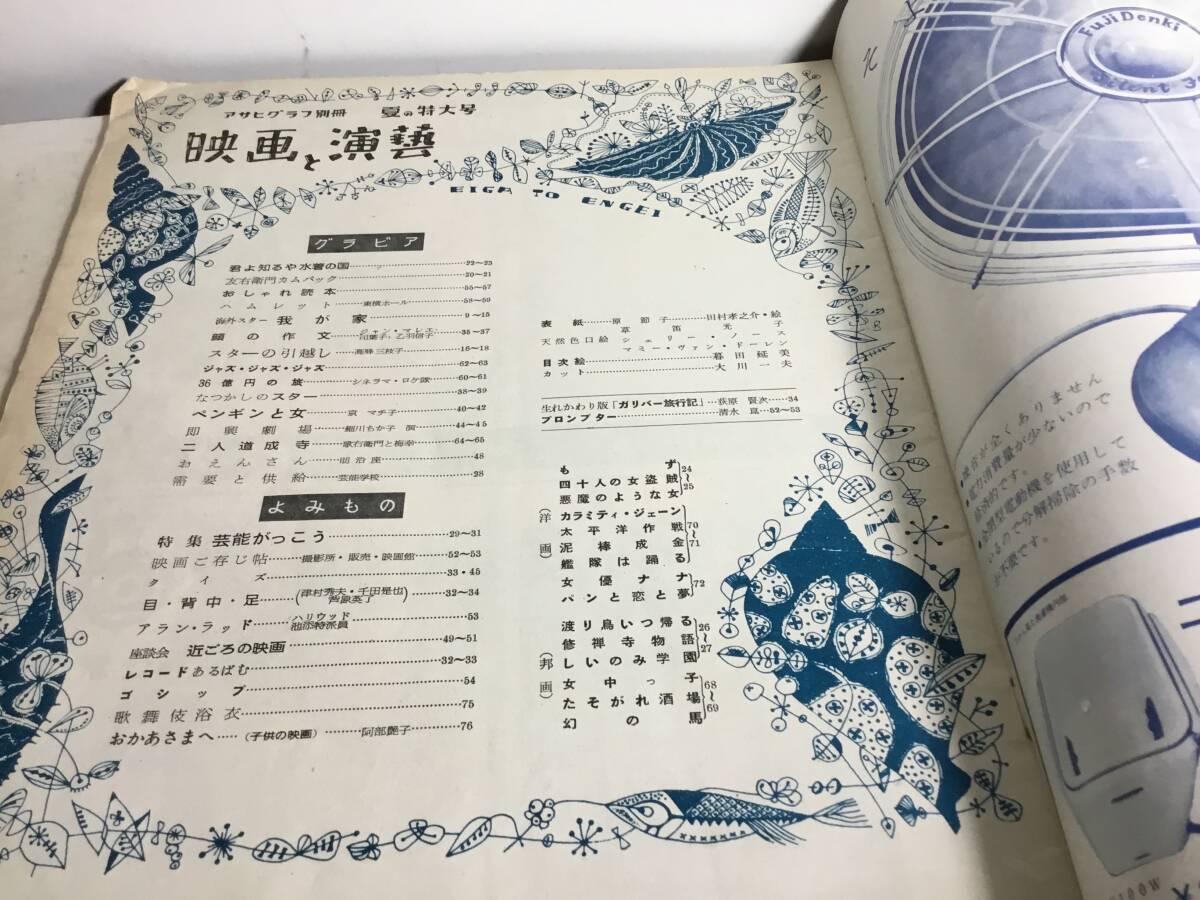 アサヒグラフ別冊 夏の特大号
映画と演藝
EIGA TO ENGEI
グラビア
君よ知るや水着の国 22~23
友右衛門カムバック 20~21
おしゃれ読本 55~57
ハムレット 東横ホール 58~59
海外スター 我が家 9~15
顔の作文 ジャン・マレエ 乙羽信子 35~37
スターの引越し 高峰三枝子 16~18
ジャズ・ジャズ・ジャズ 62~63
36億円の旅 シネラマ・ロケ隊 60~61
なつかしのスター 38~39
ペンギンと女 京マチ子 40~42
即興劇場 細川ちか子 44~45
二人道成寺 歌右衛門と梅幸 64~65
おえんさん 明治座 48
需要と供給 芸能学校 28
よみもの
特集 芸能がっこう 29~31
映画ご存じ帖 撮影所・販売・映画館 52~53
クイズ 33・45
目・背中・足 (津村秀夫・千田是也 芦原英了) 32~34
アラン・ラッド ハリウッド 池部特派員 53
座談会 近ごろの映画 49~51
レコードあるばむ 32~33
ゴシップ 54
歌舞伎浴衣 75
おかあさまへ (子供の映画) 阿部艶子 76
表紙 原節子 田村孝之介・絵
草笛光子
天然色口絵 シェリー・ノース
マミー・ヴァン・ドーレン
目次絵 暮田延美
カット 大川一夫
生れかわり版「ガリバー旅行記」 荻原賢次 34
プロンプター 清水崑 52~53
(洋画)
もず
四十人の女盗賊
悪魔のような女
24~25
カラミティ・ジェーン
太平洋作戦
泥棒成金
艦隊は踊る
70~71
女優ナナ
パンと恋と夢
72
(邦画)
渡り鳥いつ帰る
修禅寺物語
しいのみ学園
26~27
女中っ子
たそがれ酒場
幻の馬
68~69
Fuji Denki
Silent
音が全くありません
電力消費量が少ないので
経済的です。
電動機を使用して
いるので分解掃除の手数
が不要です。
100W